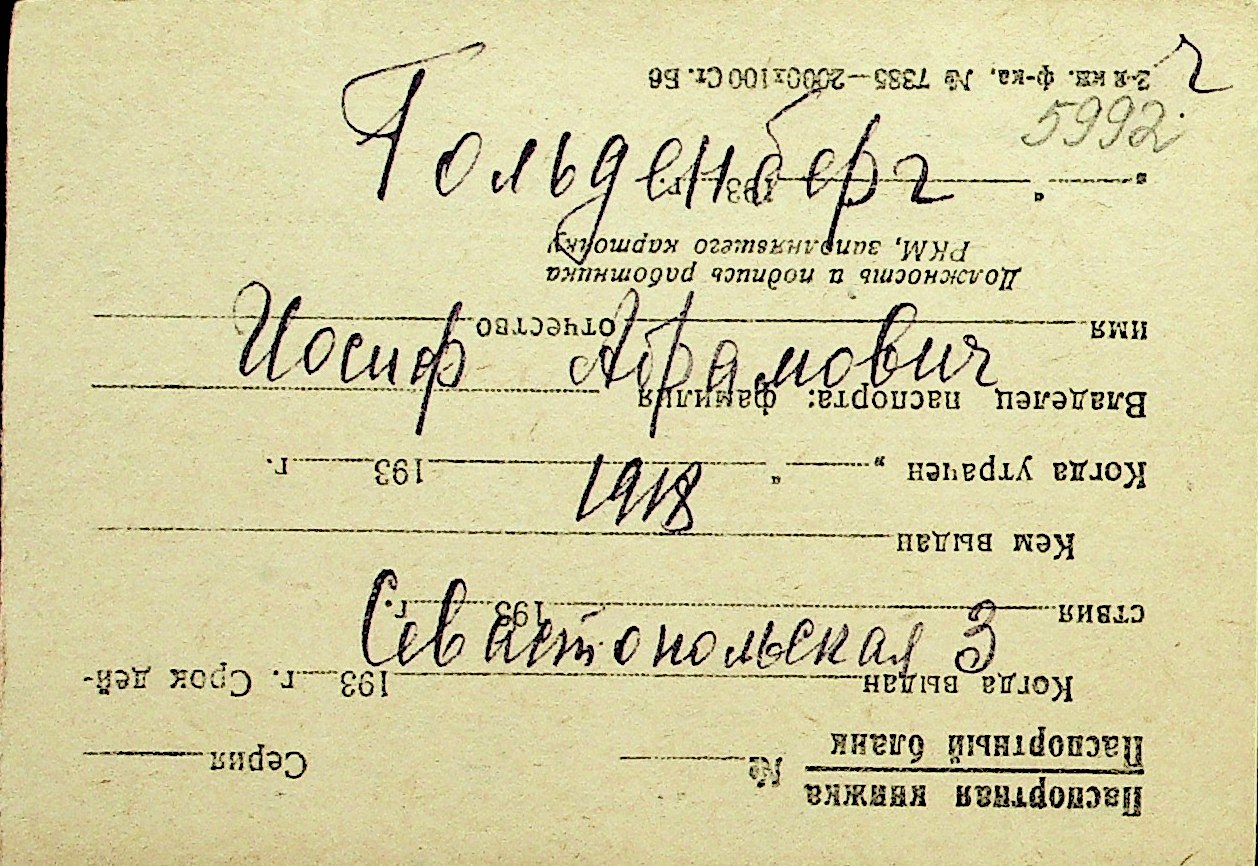 ч
5992
Гольденберг
Иосиф Абрамович
1918
Севастопольская 3
Паспортная книжка
Паспортный бланк № Серия
Когда выдан 193 г. Срок дей-
ствия 193 г.
Кем выдан
Когда утрачен „ “ 193 г.
Владелец паспорта: фамилия
имя отчество
Должность и подпись работника
РКМ, заполнявшего карточку
„ “ 193 г.
ф-ка, № 7385—2000х100 Ст. Бб